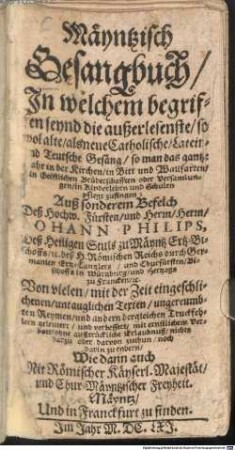 Mäyntzisch
Gesangbuch/
In welchem begrif-
fen seynd die außerlesenste/ so
wol alte/ als neue Catholische/ Latein-
Teutsche Gesäng/ so man das gantze
Jahr in der Kirchen/ in Bitt und Wallfarten/
in Geistlichen Bruderschafften oder Versamlung-
gen/ in Kinderlehren und Schulen
pflegt zusingen/
Auß sonderem Befelch
Deß Hochw. Fürsten/ und Herrn/ Herrn/
JOHANN PHILIPS,
Deß Heiligen Stuls zu Mäyntz Ertz-Bi-
schoffs/ deß H. Römischen Reichs durch Ger-
manien Ertz-Cantzlers/ und Churfürsten/ Bi-
schoffs in Würtzburg/ und Hertzogs
zu Francken/
Von vielen/ mit der Zeit eingeschli-
chenen/ untauglichen Texten/ ungereumb-
ten Reymen/ und andern dergleichen Truckfeh-
lern gereinigt/ und verbessert/ mit ernstlichem Ver-
bott ohne außtrückliche Erlaubnuß/ nichts
darzu oder darvon zuthun/ noch
darin zu endern/
Wie dann auch
Mit Römischer Käyserl. Majestät/
und Chur Mäyntzischer Freyheit.
Mäyntz/
Und in Franckfurt zu finden.
Im Jahr M. DC. LXI.